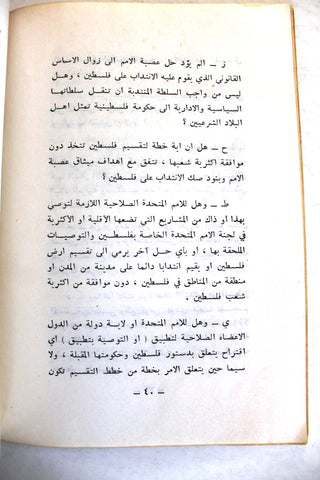 ز — الم يؤد حل عصبة الامم الى زوال الاساس
القانوني الذي يقوم عليه الانتداب على فلسطين ، وهل
ليس من واجب السلطة المنتدبة ان تنقل سلطاتها
السياسية والادارية الى حكومة فلسطينية تمثل اهل
البلاد الشرعيين ؟
ح — هل ان اية خطة لتقسيم فلسطين تتخذ دون
موافقة اكثرية شعبها ، تتفق مع اهداف ميثاق عصبة
الامم وبنود صك الانتداب على فلسطين ؟
ط — وهل للامم المتحدة الصلاحية اللازمة لتوصي
بهذا او ذاك من المشاريع التي تضعها الأقلية أو الأكثرية
في لجنة الامم المتحدة الخاصة بفلسطين والتوصيات
الملحقة بها ، او بأي حل آخر يرمي الى تقسيم ارض
فلسطين او يقيم انتدابا دائما على مدينة من المدن او
منطقة من المناطق في فلسطين ، دون موافقة من اكثرية
شعب فلسطين .
ي — وهل للامم المتحدة او لاية دولة من الدول
الاعضاء الصلاحية لتطبيق ( او التوصية بتطبيق ) أي
اقتراح يتعلق بدستور فلسطين وحكومتها المقبلة ، ولا
سيما حين يتعلق الامر بخطة من خطط التقسيم تكون
— ٤٠ —